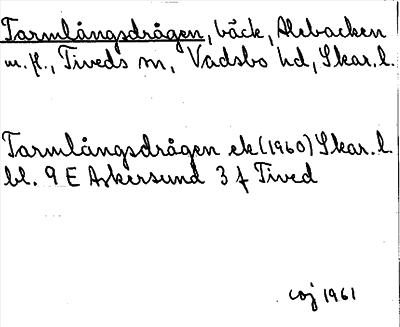 Tarmlångsdrågen, bäck, Alebacken
m.fl., Tiveds sn, Vadsbo hd, Skar.l.
Tarmlångsdrågen ek (1960) Skar.l.
bl. 9 E Askersund 3 f Tived
1961